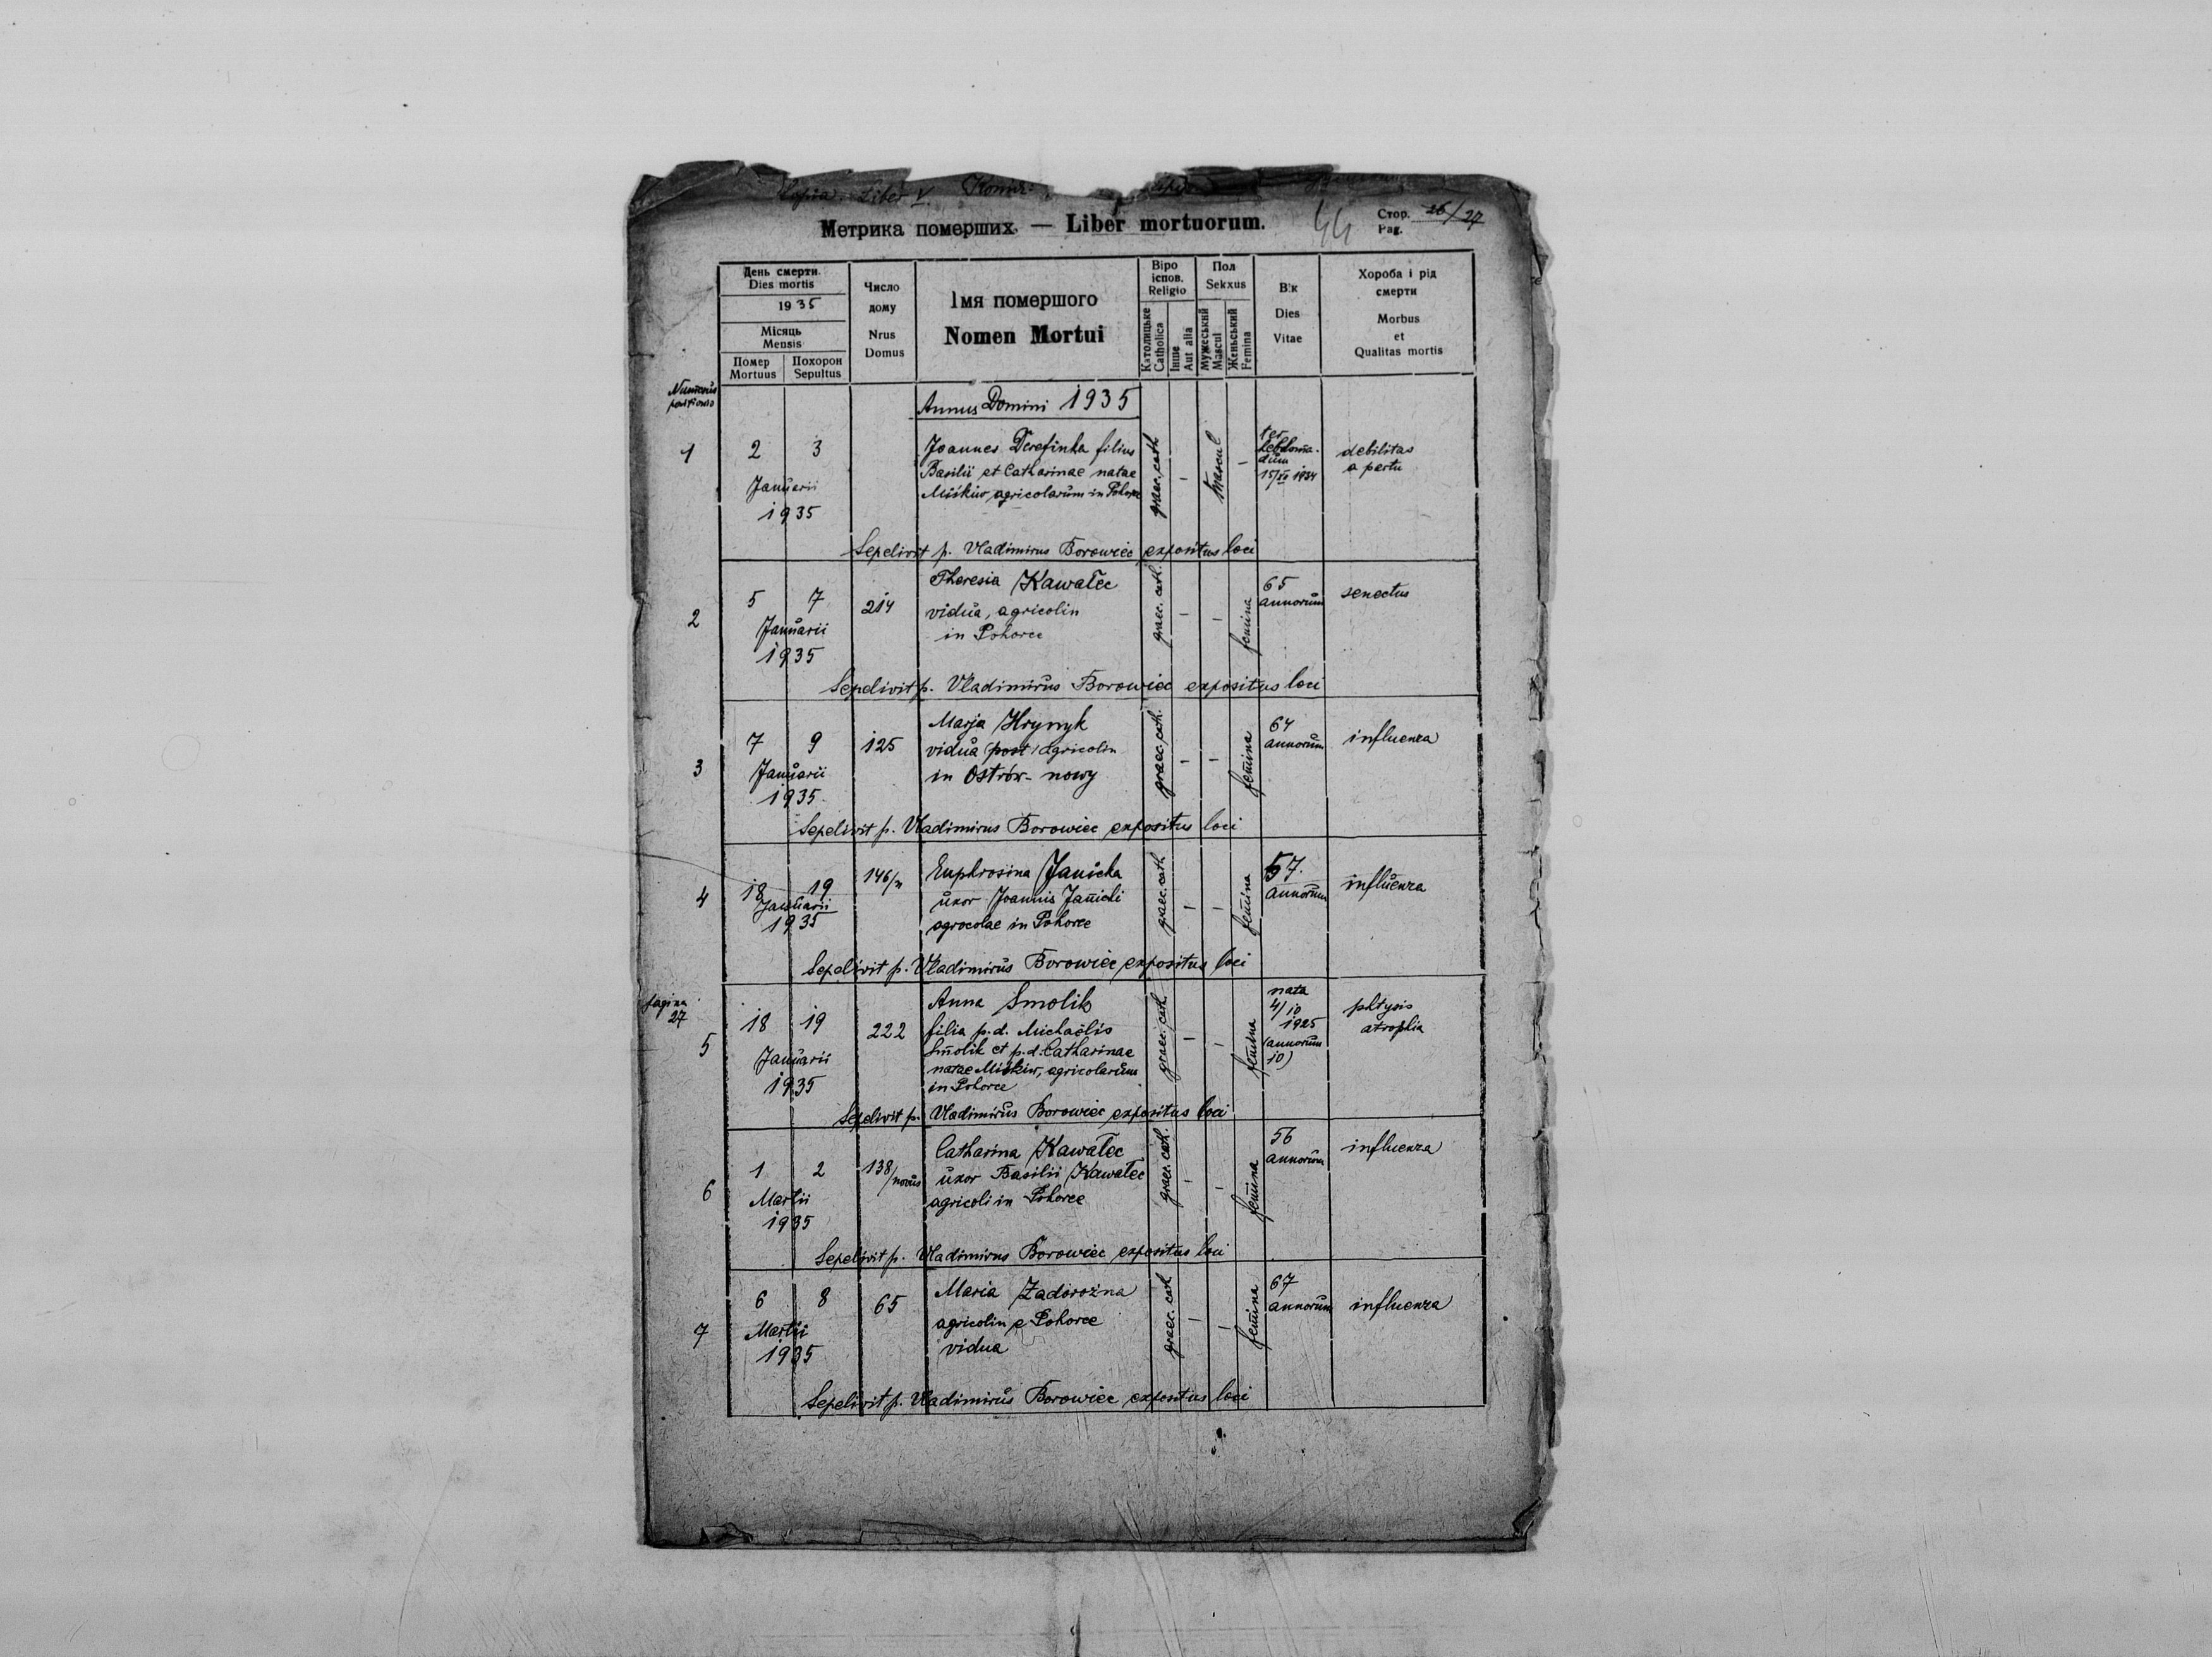 Copia Liber V.
Метрика померших. — Liber mortuorum.
44
Стор. 26/27
Pag.
День смерти.
Dies mortis
1935
Місяць
Mensis
Помер
Mortuus
Похорон
Sepultus
Число
дому
Nrus
Domus
Імя помершого
Nomen Mortui
Віро
іспов.
Religio
Католицьке
Catholica
Інше
Aut alia
Пол
Sekxus
Мужеський
Mascul
Женьський
Femina
Вік
Dies
Vitae
Хороба і рід
смерти
Morbus
et
Qualitas mortis
Numerus
Annus Domini 1935
1
2 3
Januarii
1935
Joannes Derefinka filius
Basilii et Catharinae natae
Miśkiw, agricolarum in Pohorce
graec. cath
-
Mascul
-
ter
hebdoma-
dum
15/XII 1934
debilitas
a partu
Sepelivit p. Vladimirus Borowiec expositus loci
2
5 7
Januarii
1935
214
Theresia Kawałec
vidua, agricolin
in Pohorce
graec. cath.
-
-
femina
65
annorum
senectus
Sepelivit p. Vladimirus Borowiec expositus loci
3
7 9
Januarii
1935
125
Marja Hrynyk
vidua (post) agricolin
in Ostrów-nowy
graec. cath.
-
-
femina
64
annorum
influenza
Sepelivit p. Vladimirus Borowiec expositus loci
4
18 19
Januarii
1935
146/n
Euphrosina Janicka
uxor Joannis Janicki
agrocolae in Pohorce
graec. cath
-
-
femina
57.
annorum
influenza
Sepelivit p. Vladimirus Borowiec expositus loci
pagina
27
5
18 19
Januarii
1935
222
Anna Smolik
filia p.d. Michaëlis
Smolik et p.d. Catharinae
natae Miśkiw, agricolarum
in Pohorce
graec. cath
-
-
femina
nata
4/10
1925
(annorum
10)
phtysis
atrophia
Sepelivit p. Vladimirus Borowiec expositus loci
6
1 2
Martii
1935
138/novus
Catharina Kawałec
uxor Basilii Kawałec
agricoli in Pohorce
graec. cath.
-
-
femina
56
annorum
influenza
Sepelivit p. Vladimirus Borowiec expositus loci
7
6 8
Martii
1935
65
Maria Zadorożna
agricolin e Pohorce
vidua
graec. cath
-
-
femina
67
annorum
influenza
Sepelivit p. Vladimirus Borowiec expositus loci